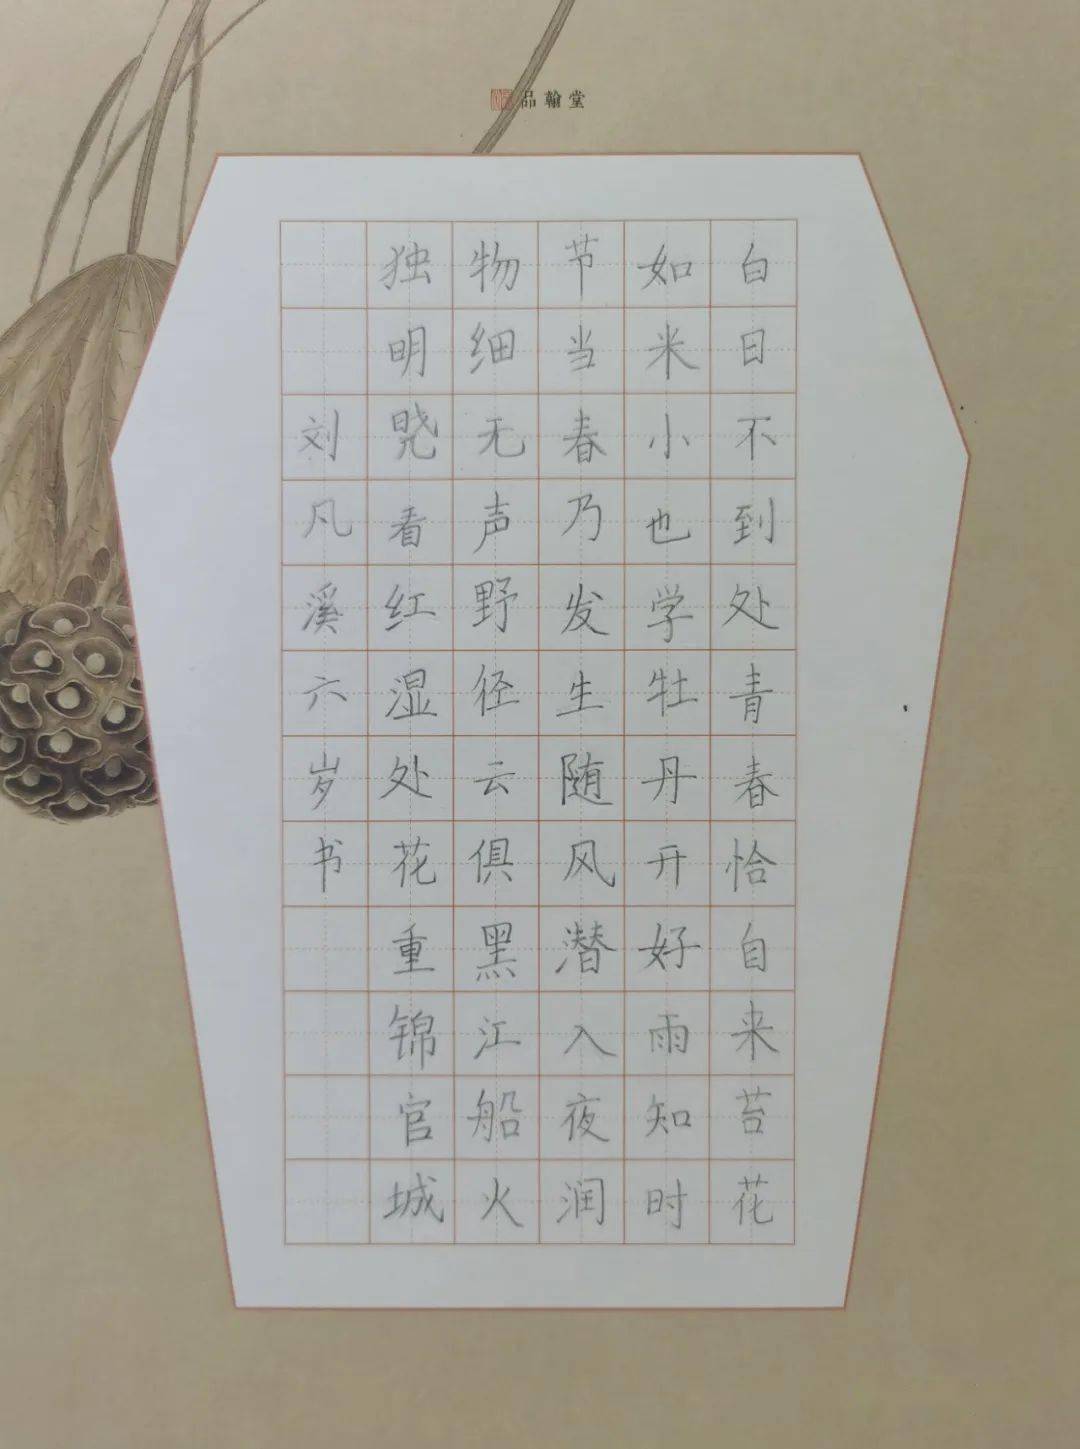 品翰堂
白日不到处青春恰自来苔花
如米小也学牡丹开好雨知时
节当春乃发生随风潜入夜润
物细无声野径云俱黑江船火
独明晓看红湿处花重锦官城
刘凡溪六岁书